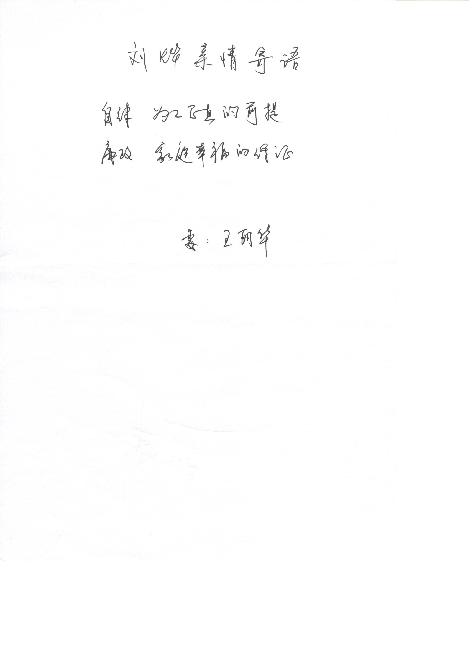 刘晔亲情寄语
自律 为工正直的前提
廉政 家庭幸福的保证
妻：王朝华